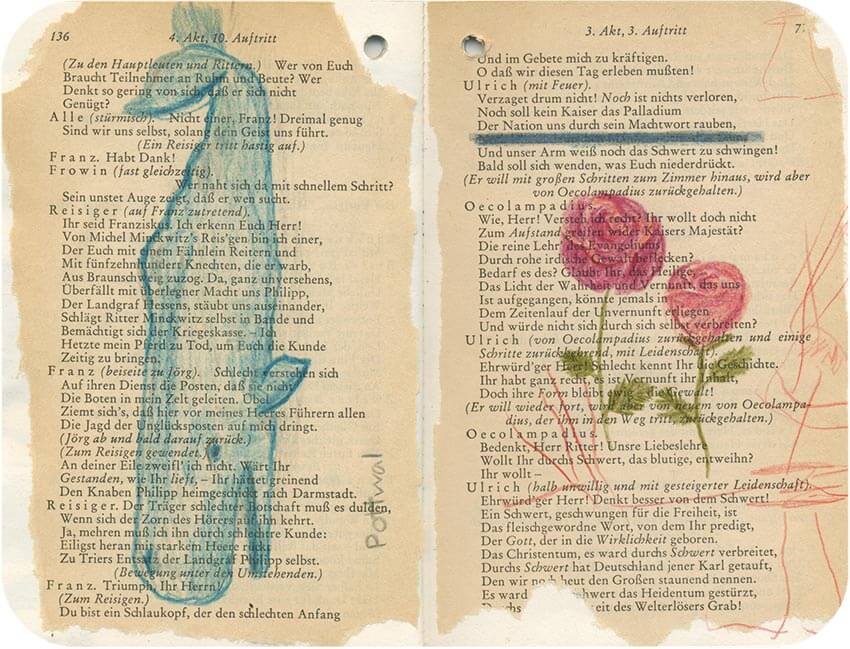 136 4. Akt, 10. Auftritt
(Zu den Hauptleuten und Rittern.) Wer von Euch
Braucht Teilnehmer an Ruhm und Beute? Wer
Denkt so gering von sich, daß er sich nicht
Genügt?
Alle (stürmisch). Nicht einer, Franz! Dreimal genug
Sind wir uns selbst, solang dein Geist uns führt.
(Ein Reisiger tritt hastig auf.)
Franz. Habt Dank!
Frowin (fast gleichzeitig).
Wer naht sich da mit schnellem Schritt?
Sein unstet Auge zeigt, daß er wen sucht.
Reisiger (auf Franz zutretend).
Ihr seid Franziskus, Ich erkenn Euch Herr!
Von Michel Minckwitz's Reis'gen bin ich einer,
Der Euch mit einem Fähnlein Reitern und
Mit fünfzehnhundert Knechten, die er warb,
Aus Braunschweig zuzog. Da, ganz unversehens,
Überfällt mit überlegner Macht uns Philipp,
Der Landgraf Hessens, stäubt uns auseinander,
Schlägt Ritter Minckwitz selbst in Bande und
Bemächtigt sich der Kriegeskasse. – Ich
Hetzte mein Pferd zu Tod, um Euch die Kunde
Zeitig zu bringen.
Franz (beiseite zu Jörg). Schlecht verstehen sich
Auf ihren Dienst die Posten, daß sie nicht
Die Boten in mein Zelt geleiten. Übel
Ziemt sich's, daß hier vor meines Heeres Führern allen
Die Jagd der Unglücksposten auf mich dringt.
(Jörg ab und bald darauf zurück.)
(Zum Reisigen gewendet.)
An deiner Eile zweifl' ich nicht. Wärt Ihr
Gestanden, wie Ihr lieft, – Ihr hättet greinend
Den Knaben Philipp heimgeschickt nach Darmstadt.
Reisiger. Der Träger schlechter Botschaft muß es dulden,
Wenn sich der Zorn des Hörers auf ihn kehrt.
Ja, mehren muß ich ihn durch schlechtre Kunde:
Eiligst heran mit starkem Heere rückt
Zu Triers Entsatz der Landgraf Philipp selbst.
(Bewegung unter den Umstehenden.)
Franz. Triumph, Ihr Herrn!
(Zum Reisigen.)
Du bist ein Schlaukopf, der den schlechten Anfang
Pottwal
3. Akt, 3. Auftritt 7
Und im Gebete mich zu kräftigen.
O daß wir diesen Tag erleben mußten!
Ulrich (mit Feuer).
Verzaget drum nicht! Noch ist nichts verloren,
Noch soll kein Kaiser das Palladium
Der Nation uns durch sein Machtwort rauben,
Und unser Arm weiß noch das Schwert zu schwingen!
Bald soll sich wenden, was Euch niederdrückt.
(Er will mit großen Schritten zum Zimmer hinaus, wird aber
von Oecolampadius zurückgehalten.)
Oecolampadius.
Wie, Herr! Versteh ich recht? Ihr wollt doch nicht
Zum Aufstand greifen wider Kaisers Majestät?
Die reine Lehr' des Evangeliums
Durch rohe irdische Gewalt beflecken?
Bedarf es des? Glaubt Ihr, das Heilige,
Das Licht der Wahrheit und Vernunft, das uns
Ist aufgegangen, könnte jemals in
Dem Zeitenlauf der Unvernunft erliegen
Und würde nicht sich durch sich selbst verbreiten?
Ulrich (von Oecolampadius zurückgehalten und einige
Schritte zurückgehend, mit Leidenschaft).
Ehrwürd'ger Herr! Schlecht kennt Ihr die Geschichte.
Ihr habt ganz recht, es ist Vernunft ihr Inhalt,
Doch ihre Form bleibt ewig – die Gewalt!
(Er will wieder fort, wird aber von neuem von Oecolampa-
dius, der ihm in den Weg tritt, zurückgehalten.)
Oecolampadius.
Bedenkt, Herr Ritter! Unsre Liebeslehre
Wollt Ihr durchs Schwert, das blutige, entweihn?
Ihr wollt –
Ulrich (halb unwillig und mit gesteigerter Leidenschaft).
Ehrwürd'ger Herr! Denkt besser von dem Schwert!
Ein Schwert, geschwungen für die Freiheit, ist
Das fleischgewordne Wort, von dem Ihr predigt,
Der Gott, der in die Wirklichkeit geboren.
Das Christentum, es ward durchs Schwert verbreitet,
Durchs Schwert hat Deutschland jener Karl getauft,
Den wir noch heut den Großen staunend nennen.
Es ward Schwert das Heidentum gestürzt,
des Welterlösers Grab!